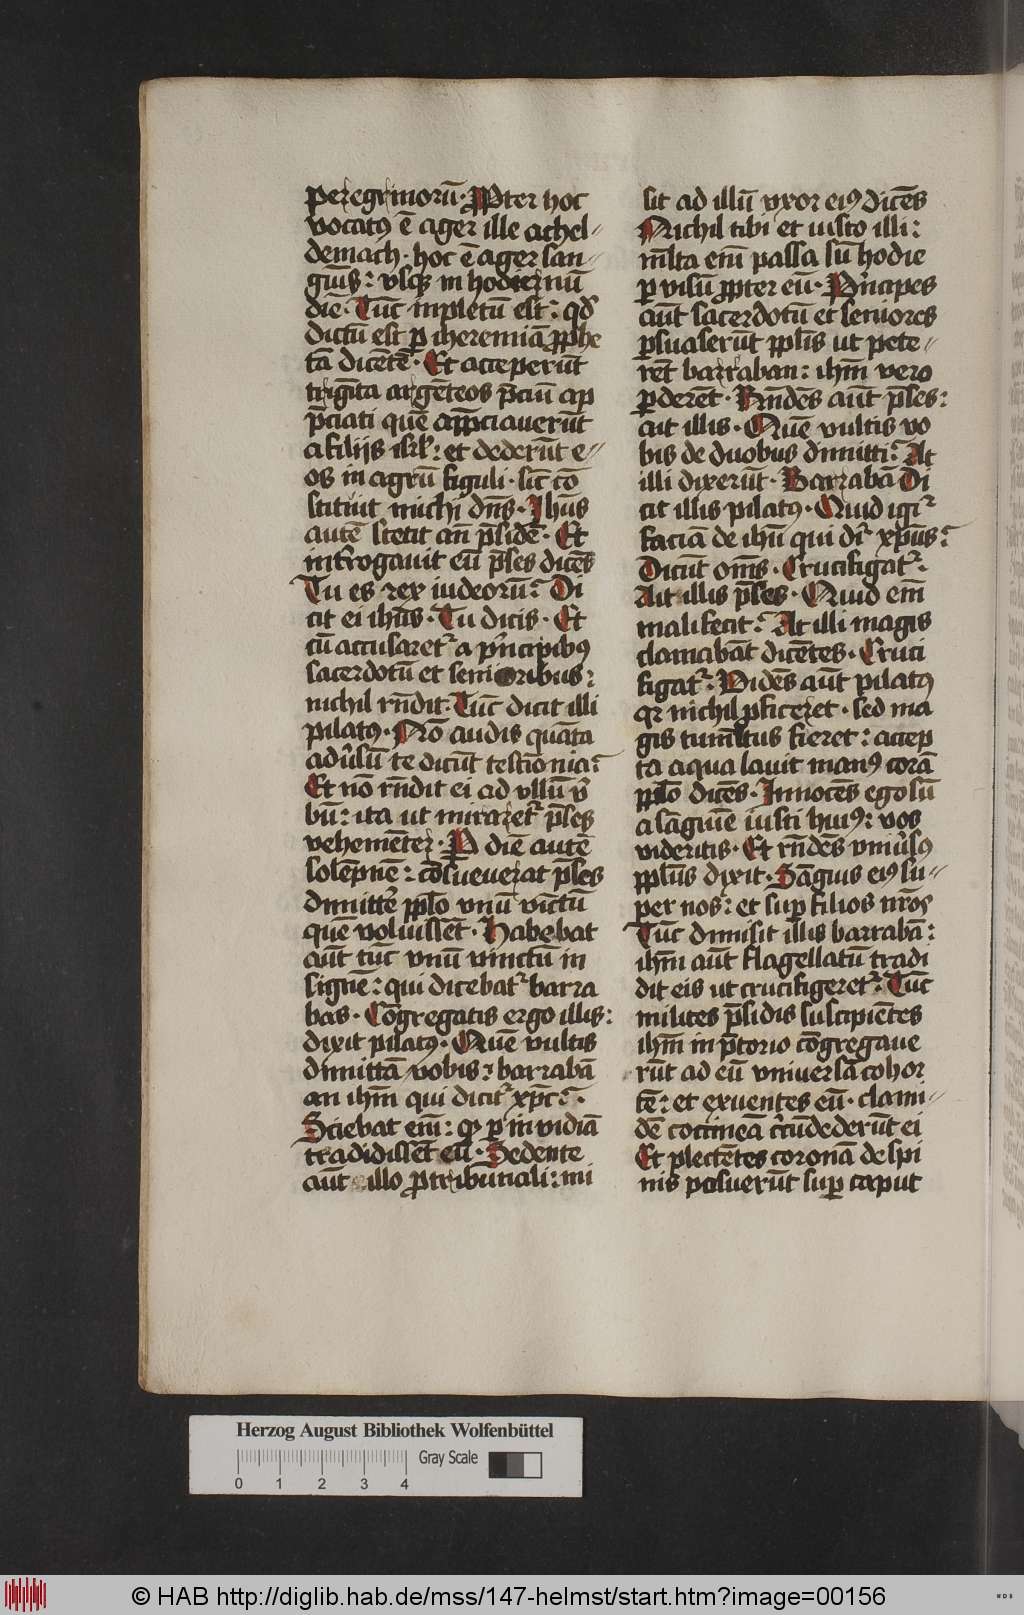 peregrinorū· Ꝓpter hoc
vocatꝰ ē ager ille achel⸗
demach· hoc ē ager san⸗
guīs: vsqꝫ in hodiernū
diē· Tūc inpletū est: qd̛
dictū est ꝑ iheremiā ꝓphe
tā dicētē· Et acceperūt
triginta argēteos p̄ciū ap
p̄ciati quē app̄ciauerūt
a filijs isrl̄: et dederūt e⸗
os in agrū figuli· sic̄ cō
stituit michi dn̄s· Jhūs
autē stetit an̄ p̄sidē· Et
int̛rogauit eū p̄ses dicēs
Tu es rex iudeorū: Di
cit ei ihūs· Tu dicis· Et
cū accusaret᷒ a pͥncipibꝰ
sacerdotū et senioribus:
nichil rn̄dit· Tūc dicit illi
pilatꝰ· Nō audis quāta
adưsū te dicūt testīonia:
Et nō rn̄dit ei ad vllū v̛
bū: ita ut miraret᷒ p̄ses
vehemēter· Ꝑ diē autē
solēpnē: cōsueuerat p̄ses
dimitte̛ pplo vnū vīctū
quē voluissēt· Habebat
aūt tūc vnū vinctū in
signē: qui dicebat᷒ barra
bas· Cōgregatis ergo illis:
dixit pilatꝰ· Quē vultis
dimittā vobis: barrabā
an ihm̄ qui dicit᷒ xp̄c:·
Sciebat em̄: ꝙ ꝑ inuidiā
tradidissēt eū· Sedente
aūt illo ꝓ tribunali: mi
sit ad illū vxor eiꝰ dicēs
Nichil tibi et iusto illi:
ml̄ta em̄ passa sū hodie
ꝑ visū ꝓpter eū· Pͥncipes
aūt sacerdotū et seniores
ꝑsuaserūt pplīs ut pete⸗
rēt barraban: ihm̄ vero
ꝑderēt· Rn̄dēs aūt p̄ses:
ait illis· Quē vultis vo
bis de duobus dimitti: At
illi dixerūt· Barrabā Di
cit illis pilatꝰ· Quid igi᷒
faciā de ihū qui dr̄ xpūs:
Dicūt om̄s· Crucifigat᷒·
Ait illis p̄ses· Quid em̄
mali fecit: At illi magis
clamabāt dicētes· Cruci
figat᷒· Vidēs aūt pilatꝰ
qꝛ nichil ꝓficeret· sed ma
gis tumltus fieret: accep
ta aqua lauit manꝰ corā
pplo dicēs· Innocēs ego sū
a sāguīe iusti huiꝰ: vos
videritis· Et rn̄dēs vniưsꝰ
pplūs dixit· Sāguis eiꝰ su⸗
per nos: et suꝑ filios nr̄os
Tūc dimisit illis barrabā:
ihm̄ aūt flagellatū tradi
dit eis ut crucifigeret᷒· Tūc
milites p̄sidis suscipiētes
ihm̄ in p̄torio cōgregaue
rūt ad eū vniuersā cohor
tē: et exuentes eū· clami⸗
dē coccineā cͥcūdederūt ei
Et plectētes coronā de spi
nis posuerūt suꝑ caput
Herzog August Bibliothek Wolfenbüttel
Gray Scale
0 1 2 3 4
© HAB http://diglib.hab.de/mss/147-helmst/start.htm?image=00156